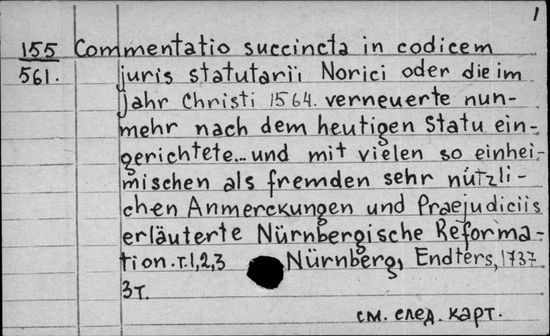 1
155 Commentatio succincta in codicem
561. juris statutarii Norici oder die im
Jahr Christi 1564. verneuerte nun-
mehr nach dem heutigen Statu ein-
gerichtete... und mit vielen so einhei-
mischen als fremden sehr nützli-
chen Anmerckungen und Praejudiciis
erläuterte Nürnbergische Reforma-
tion. т.1,2,3 Nürnberg, Endters, 1737
3т.
см. след. карт.